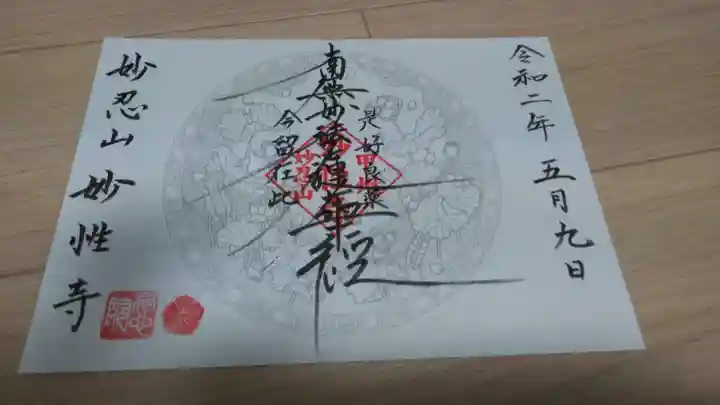 令和二年 五月九日
是好良薬
南無妙法蓮華経
今留在此
妙忍山
妙忍山 妙性寺